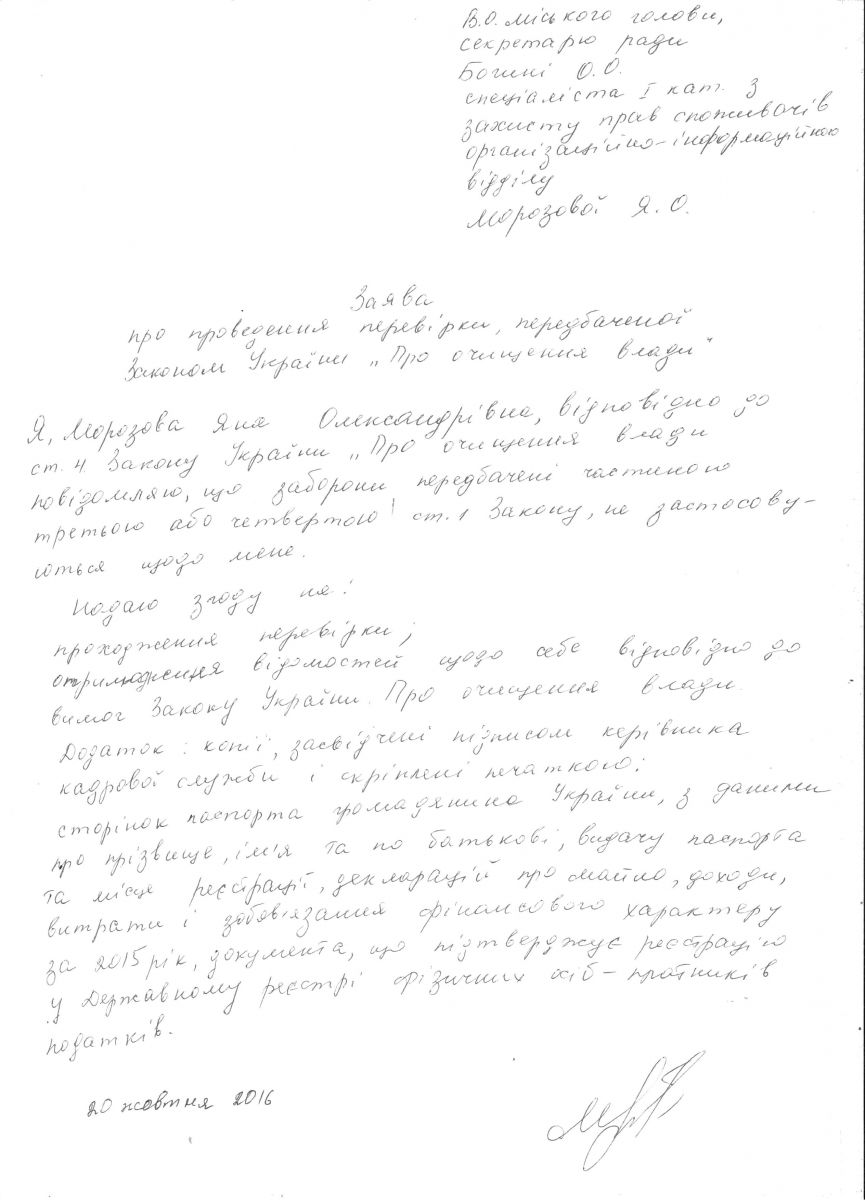 В.О. міського голови,
секретарю ради
Богині О.О.
спеціаліста І кат. з
захисту прав споживачів
організаційно-інформаційною
відділу
Морозової Я.О.
Заява
про проведення перевірки, передбаченої
Законом України „Про очищення влади"
Я, Морозова Яна Олександрівна, відповідно до
ст. 4 Закону України „Про очищення влади
повідомляю, що заборони передбачені частиною
третьою або четвертою ст. 1 Закону, не застосову-
ються щодо мене.
Надаю згоду на:
проходження перевірки;
оприлюднення відомостей щодо себе відповідно до
вимог Закону України. Про очищення влади.
Додаток: копії, засвідчені підписом керівника
кадрової служби і скріплені печаткою:
сторінок паспорта громадянина України, з даними
про прізвище, ім'я та по батькові, видачу паспорта
та місце реєстрації, декларацій про майно, доходи,
витрати і зобов'язання фінансового характеру
за 2015 рік, документа, що підтверджує реєстрацію
у Державному реєстрі фізичних осіб-платників
податків.
20 жовтня 2016